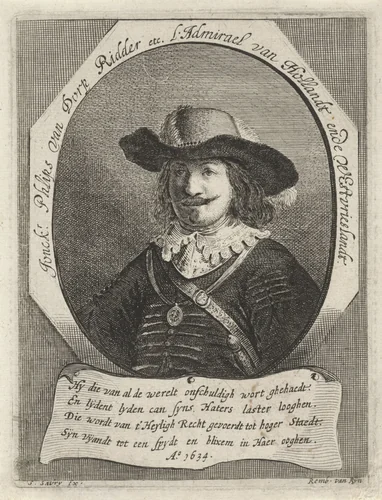 Jonckr. Philips van Dorp Ridder etc. L. Admirael van Hollandt ende Westvrieslandt
Hy die van al de werelt onschuldigh wort gehaedt.
En lydent lyden can syns Haters laster looghen.
Die wordt van t'Heyligh Recht gevoerdt tot hoger Staedt.
Syn Vyandt tot een spydt en blixem in Haer ooghen.
Ao. 1634.
S. Savry fec.
Remb. van Ryn